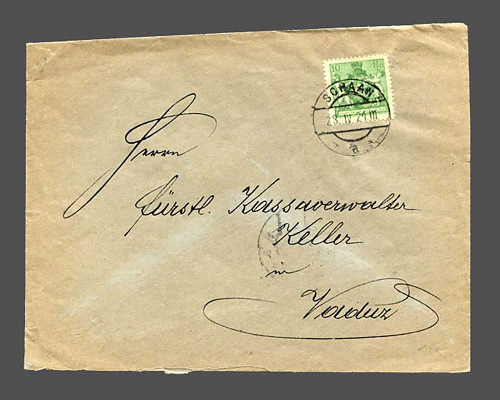 10
SCHAAN
Herrn
fürstl. Kassaverwalter
Keller
in
Vaduz